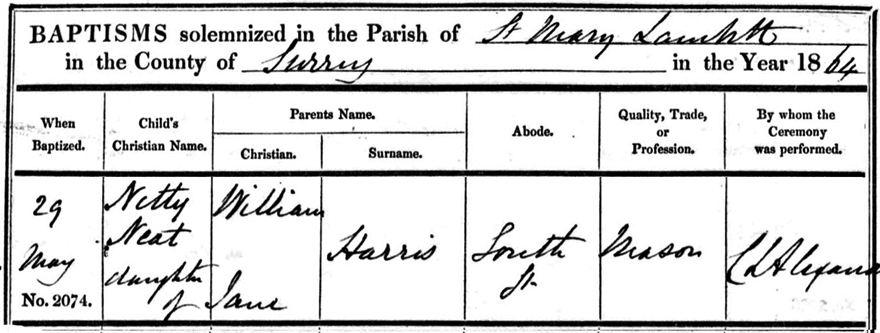 BAPTISMS solemnized in the Parish of St Mary Lambeth
in the County of Surrey in the Year 1864
When Baptized.
Child's Christian Name.
Parents Name.
Christian.
Surname.
Abode.
Quality, Trade, or Profession.
By whom the Ceremony was performed.
29
May
No. 2074.
Netty
Neat
daughter
of
William
Jane
Harris
South
St
Mason